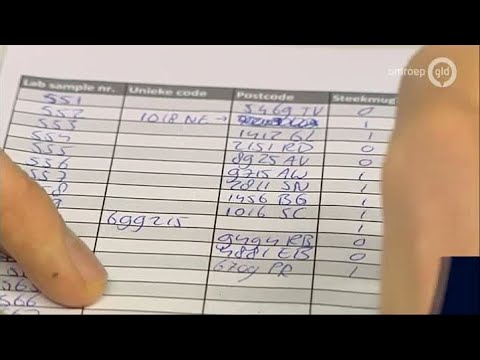 omroep gld
Lab sample nr. Unieke code Postcode Steekmug
551 5469 TV 0
552 1018 NE → 1
553 1412 GL 1
554 2151 RD 0
555 8925 AV 0
556 9715 AW 1
557 2811 SN 1
8 1456 BG 1
9 1016 SC 1
699215
9494 RB 0
4881 EB 0
6709 PR 1
566